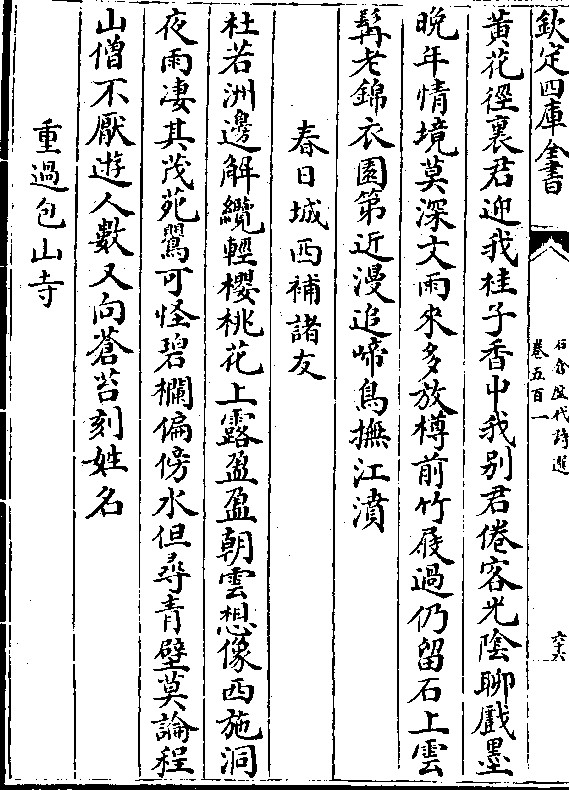 欽定四庫全書
石倉歷代詩選
卷五百一
六十六
黄花徑裏君迎我桂子香中我别君倦客光陰聊戲墨
晚年情境莫深文雨來多放樽前竹屐過仍留石上雲
髯老錦衣園第近漫追啼鳥撫江濆
春日城西補諸友
杜若洲邊解纜輕櫻桃花上露盈盈朝雲想像西施洞
夜雨凄其茂苑鸎可怪碧欄偏傍水但尋青壁莫論程
山僧不厭遊人數又向蒼苔刻姓名
重過包山寺